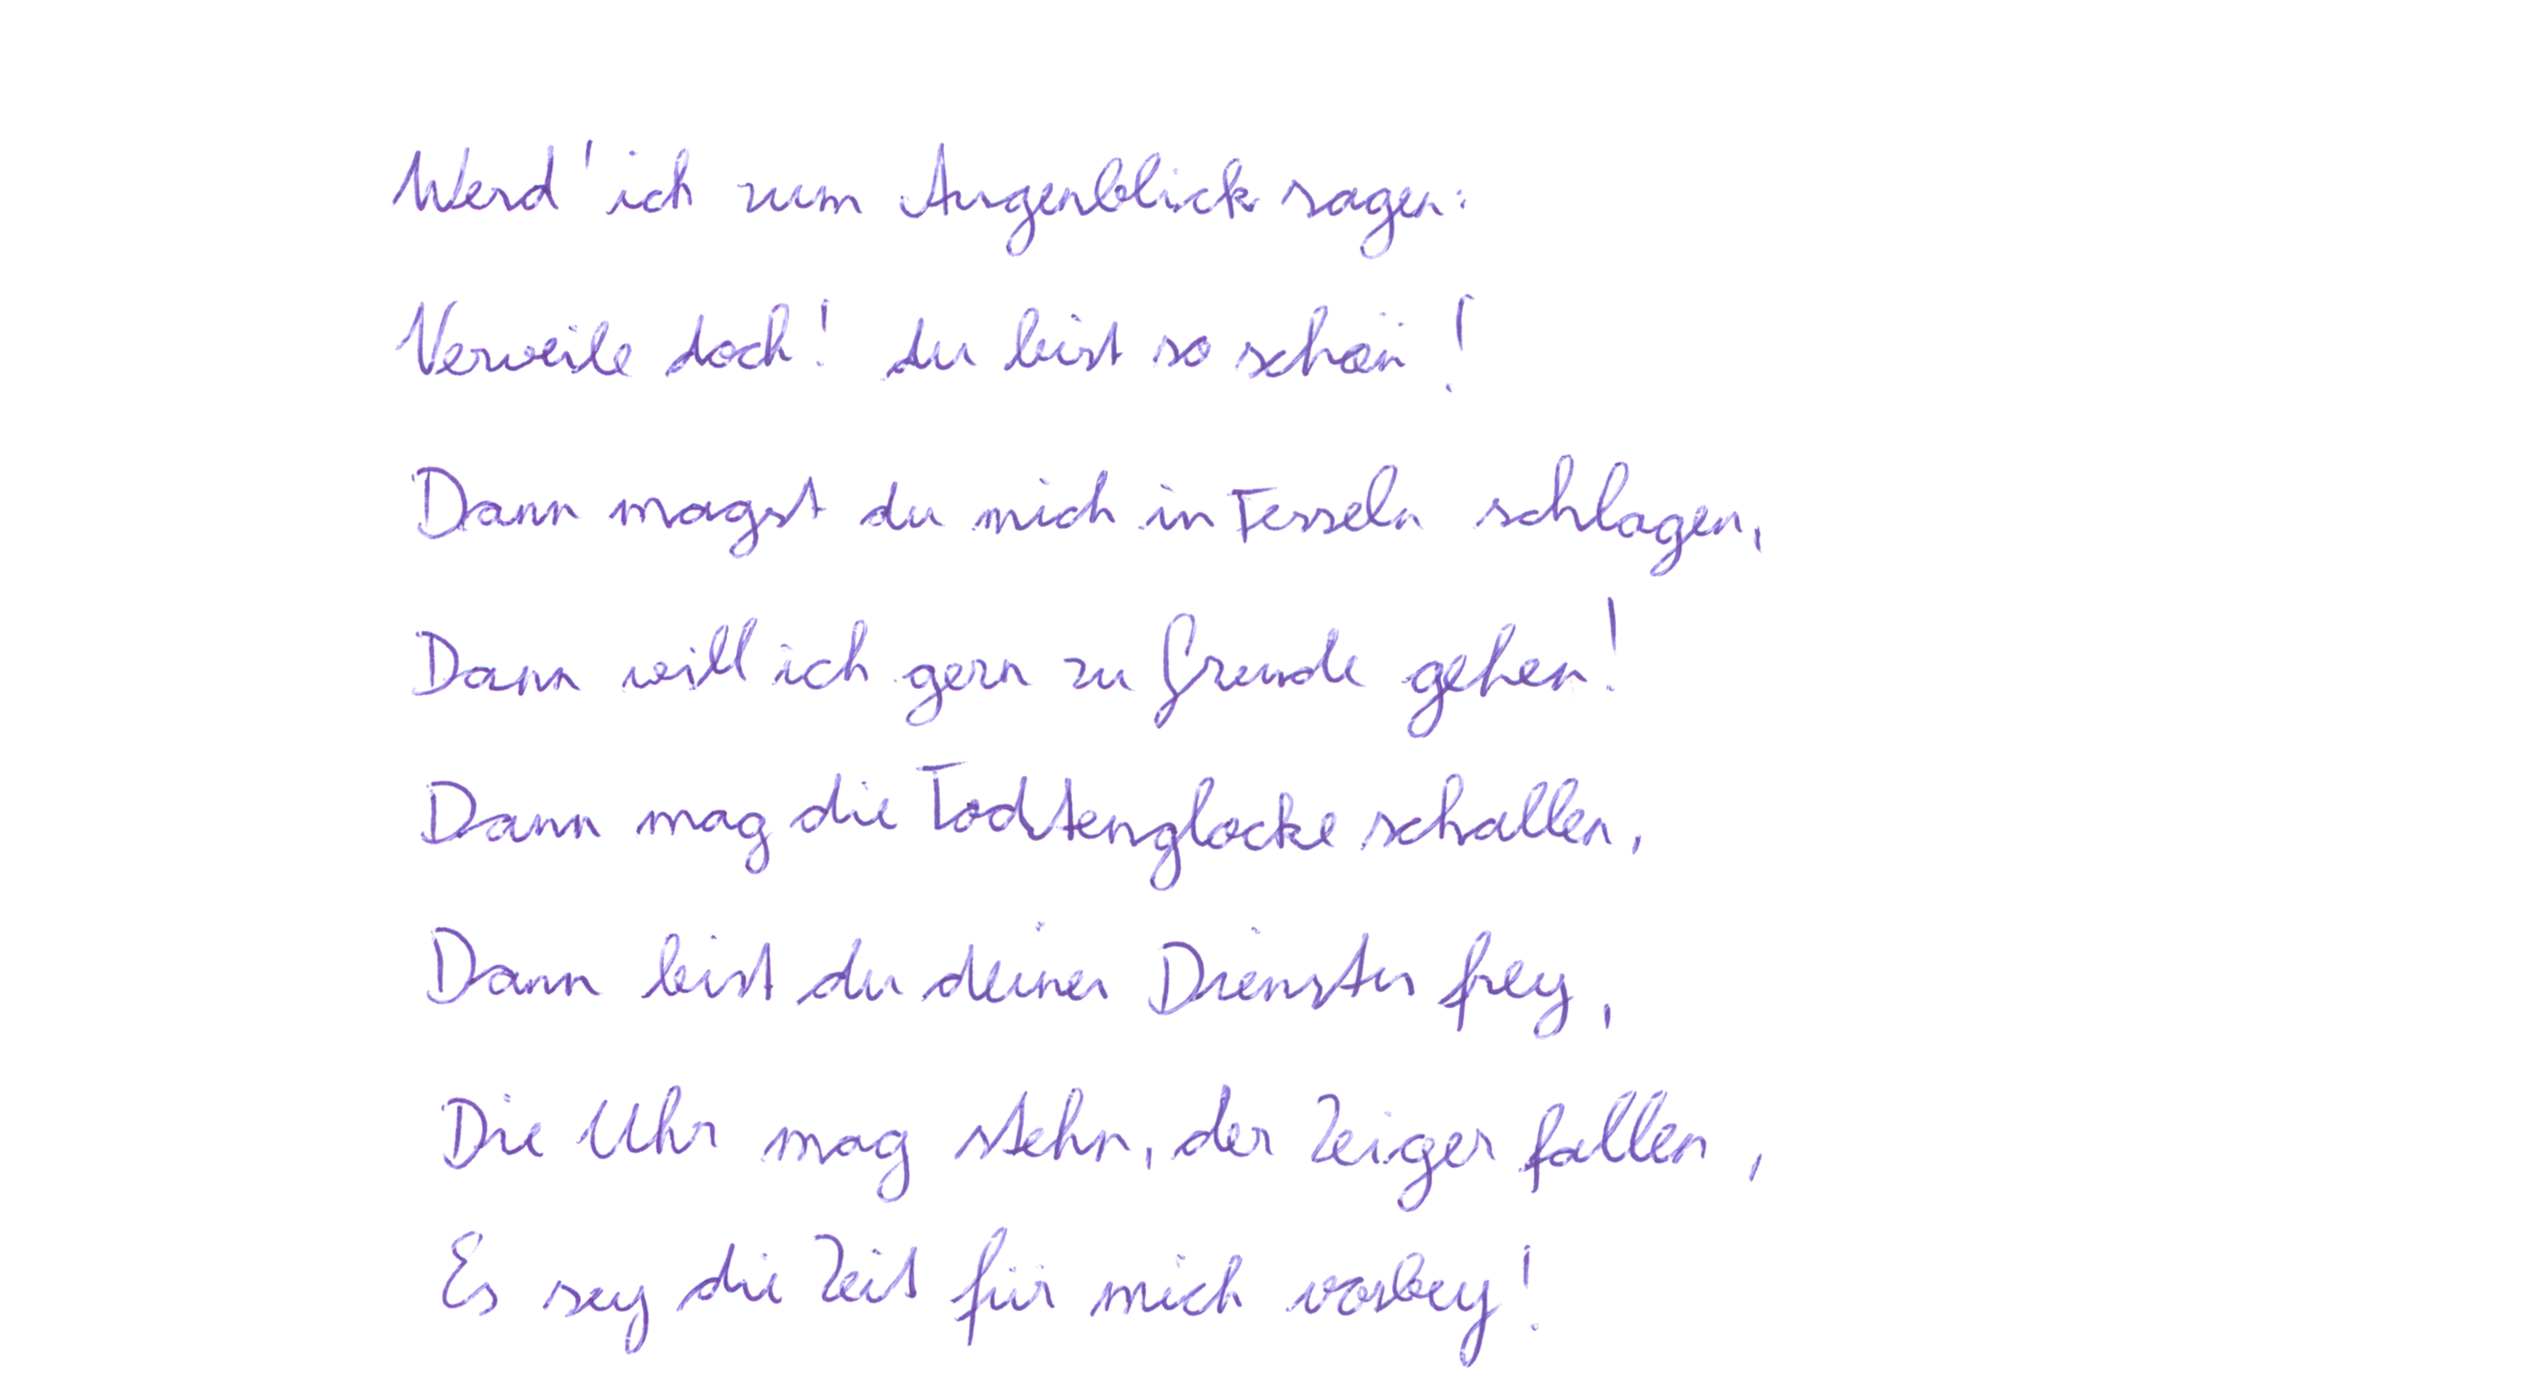 Werd' ich zum Augenblick sagen:
Verweile doch! du bist so schön!
Dann magst du mich in Fesseln schlagen,
Dann will ich gern zu Grunde gehen!
Dann mag die Todtenglocke schallen,
Dann bist du deines Dienstes frey,
Die Uhr mag stehn, der Zeiger fallen,
Es sey die Zeit für mich vorbey!